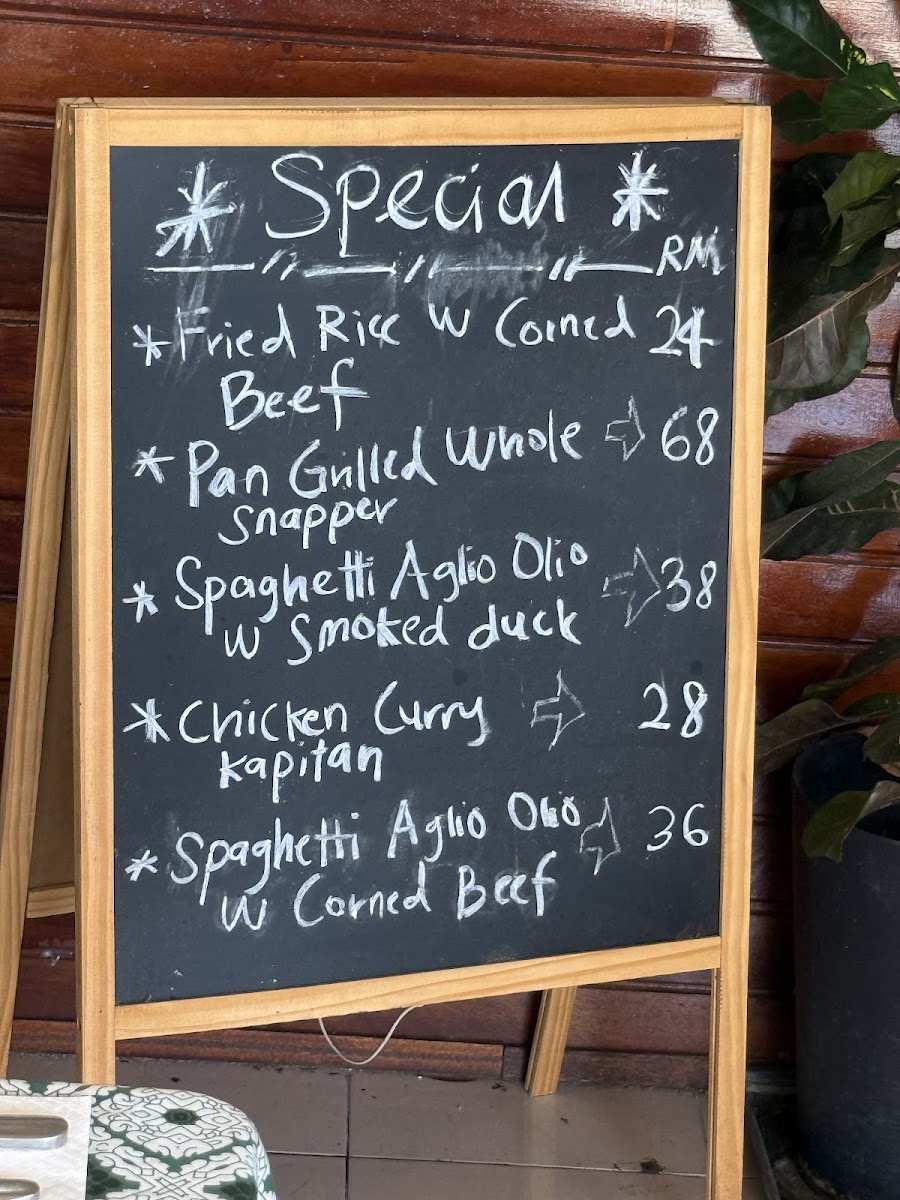 * Special *
RM
* Fried Rice W Corned 24
Beef
* Pan Grilled Whole ⇨ 68
Snapper
* Spaghetti Aglio Olio ⇨ 38
W Smoked duck
* Chicken Curry ⇨ 28
kapitan
* Spaghetti Aglio Olio ⇨ 36
W Corned Beef